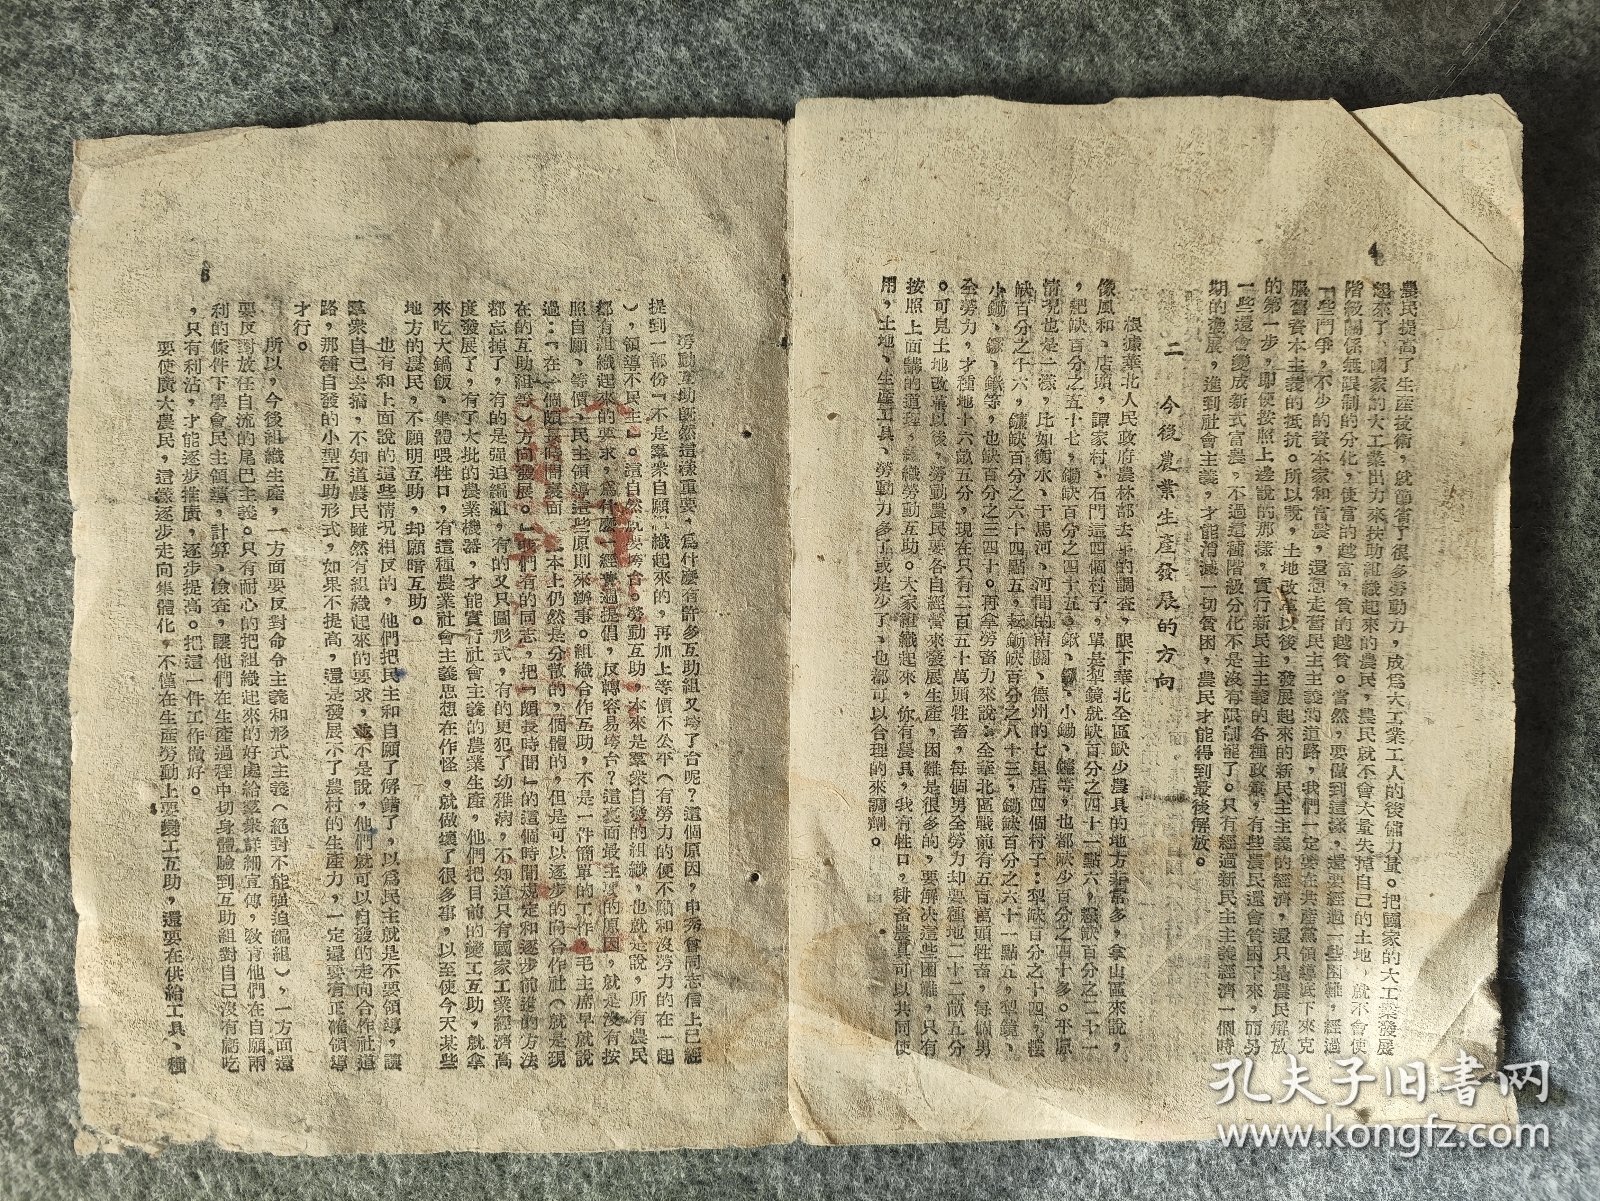 4
農民提高了生產技術，就節省了很多勞動力，成爲大工業工人的後備力量。把國家的大工業發展
起來了，國家的大工業出力來扶助組織起來的農民，農民就不會大量失掉自己的土地，就不會使
階級關係無限制的分化，使富的越富，貧的越貧。當然，要做到這樣，還要經過一些困難，經過
一些鬥爭，不少的資本家和富農，還想走舊民主主義的道路，我們一定要在共產黨領導底下來克
服舊資本主義的抵抗。所以說，土地改革以後，發展起來的新民主主義的經濟，還只是農民解放
的第一步，即便按照上邊說的那樣，實行新民主主義的各種政策，有些農民還會貧困下來，而另
一些還會變成新式富農，不過這種階級分化不是沒有限制罷了。只有經過新民主主義經濟一個時
期的發展，進到社會主義，才能消滅一切貧困，農民才能得到最後解放。
二 今後農業生產發展的方向
根據華北人民政府農林部去年的調查，眼下華北全區缺少農具的地方非常多，拿山區來說，
像風和、店頭，譚家村、石門這四個村子，單是犁鏡就缺百分之四十一點六，
，耙缺百分之五十七，鋤缺百分之四十五，鍁、鐝、小鋤、鐮等，也都缺少百分之四十多。平原
情況也是一樣，比如衡水、于馬河、河間的南關、德州的七里店四個村子：犁缺百分之十四，
缺百分之十六，鐮缺百分之六十四點五，耘鋤缺百分之八十三，鋤缺百分之六十一點五，犁鏡、
小鋤、鐝、鍁等，也都缺百分之三四十。再拿勞畜力來說：全華北區戰前有五百萬頭牲畜，每個男
全勞力，才種地十六畝五分，現在只有二百五十萬頭牲畜，每個男全勞力却要種地二十二畝五分
。可見土地改革以後，勞動農民要各自經營來發展生產，困難是很多的，要解決這些困難，只有
按照上面講的道理，組織勞動互助。大家組織起來，你有農具，我有牲口，耕畜農具可以共同使
用，土地、生產工具、勞動力多了或是少了、也都可以合理的來調劑。
5
勞動互助既然這樣重要，爲什麼有許多互助組又垮了台呢？這個原因，申秀會同志信上已經
提到一部份『不是羣衆自願組織起來的，再加上等價不公平（有勞力的便不願和沒勞力的在一起
），領導不民主』。這自然就要垮台。勞動互助，本來是羣衆自發的組織，也就是說，所有農民
都有組織起來的要求，爲什麼一經過提倡，反轉容易垮台？這裏面最主要的原因，就是沒有按
照自願、等價、民主領導這些原則來辦事。組織合作互助，不是一件簡單的工作，毛主席早就說
過：『在一個頗長時間裏面，基本上仍然是分散的，個體的，但是可以逐步的向合作社（就是現
在的互助組等）方向發展。』我們有的同志，把『頗長時間』的這個時間規定和逐步前進的方法
都忘掉了，有的是强迫編組，有的又只圖形式，有的更犯了幼稚病，不知道只有國家工業經濟高
度發展了，有了大批的農業機器，才能實行社會主義的農業生產，他們把目前的變工互助，就拿
來吃大鍋飯、集體喂牲口，有這種農業社會主義思想在作怪，就做壞了很多事，以至使今天某些
地方的農民，不願明互助，却願暗互助。
也有和上面說的這些情况相反的，他們把民主和自願了解錯了，以爲民主就是不要領導，讓
羣衆自己去搞，不知道農民雖然有組織起來的要求，並不是說，他們就可以自發的走向合作社道
路，那種自發的小型互助形式，如果不提高，還是發展不了農村的生產力，一定還要有正確領導
才行。
所以，今後組織生產，一方面要反對命令主義和形式主義（絕對不能强迫編組），一方面還
要反對放任自流的尾巴主義。只有耐心的把組織起來的好處給羣衆詳細宣傳，敎育他們在自願兩
利的條件下學會民主領導，計算、檢查，讓他們在生產過程中切身體驗到互助組對自己沒有虧吃
，只有利沾，才能逐步推廣，逐步提高。把這一件工作做好。
要使廣大農民，這樣逐步走向集體化，不僅在生產勞動上要變工互助，還要在供給工具、種
孔夫子旧書网
www.kongfz.com